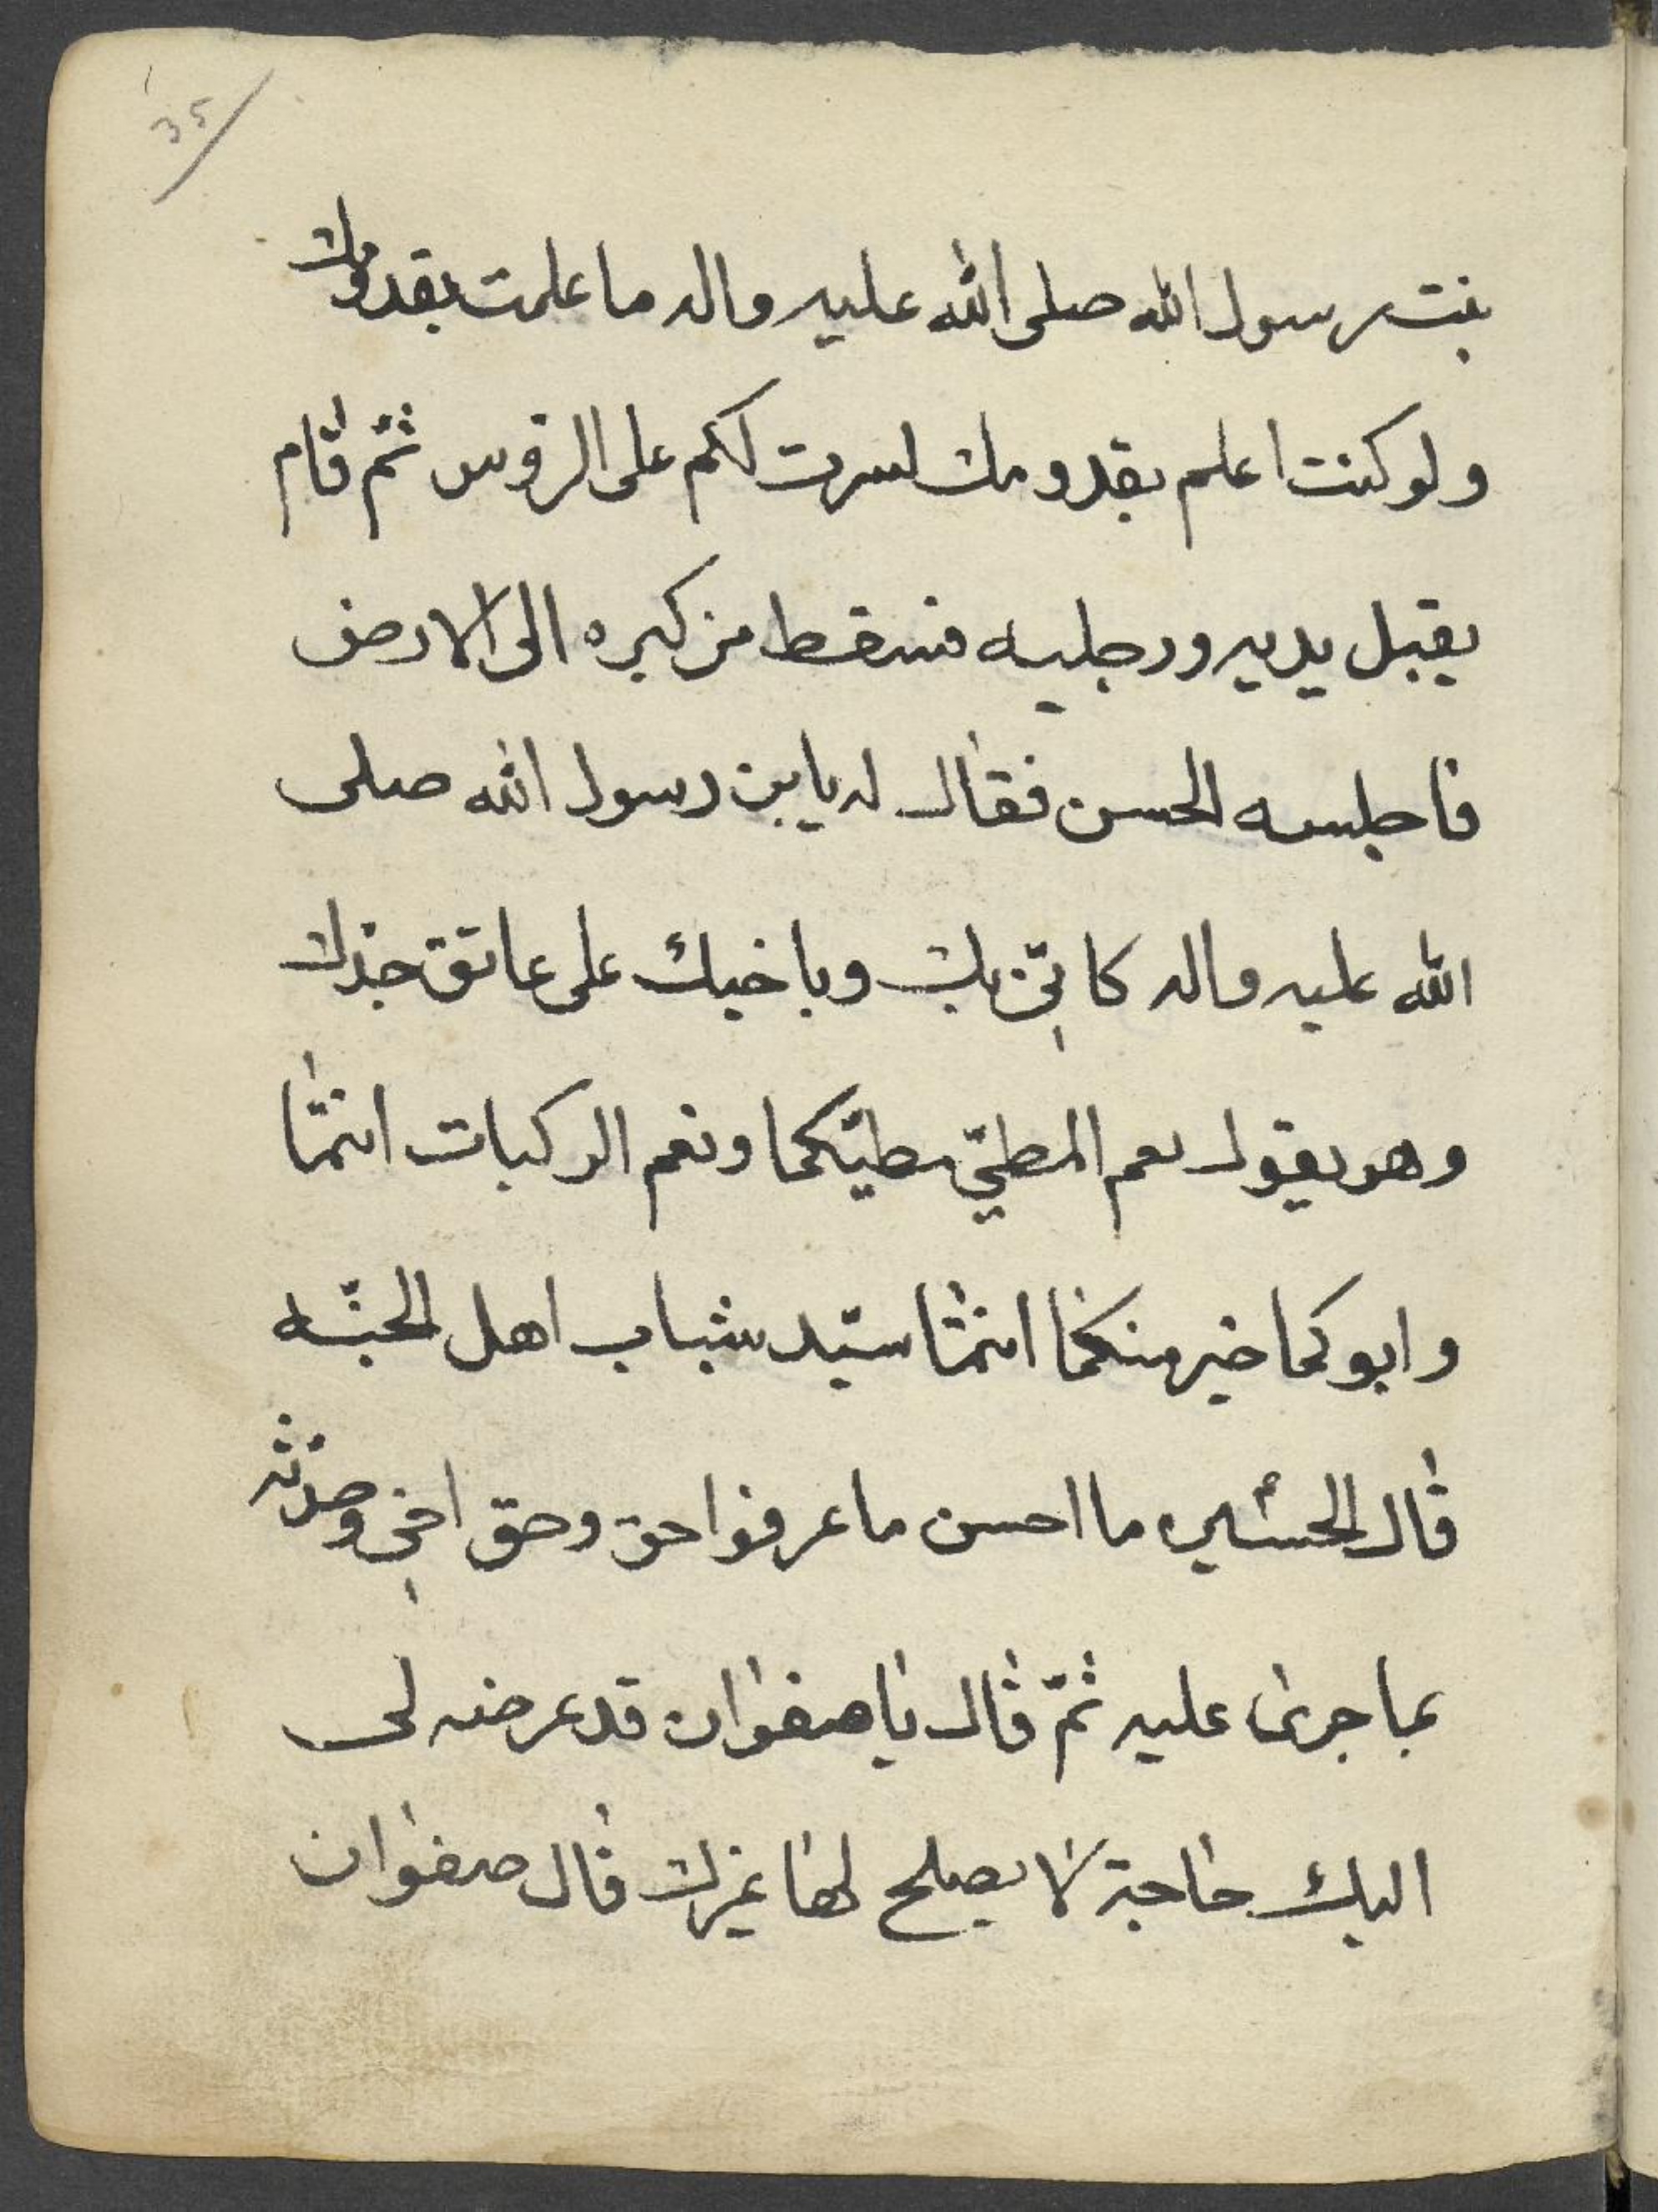 35
بنت رسول الله صلى الله عليه واله ما علمت بقدومك
ولو كنت اعلم بقدومك لسرت لكم على الرؤس ثمّ قام
يقبل يديه ورجليه فسقط من كبره الى الارض
فاجلسه الحسن فقال له يابن رسول الله صلى
الله عليه واله كانّي بك وباخيك على عاتق جدّك
وهو يقول نعم المطيّ مطيّكما ونعم الركبات انتما
وابوكما خير منكما انتما سيّد شباب اهل الجنّه
قال الحسين ما احسن ما عرفوا حق وحق اخي وحدّثه
بما جرى عليه ثمّ قال يا صفوان قد عرضه لى
اليك حاجة لا يصلح لها غيرك قال صفوان